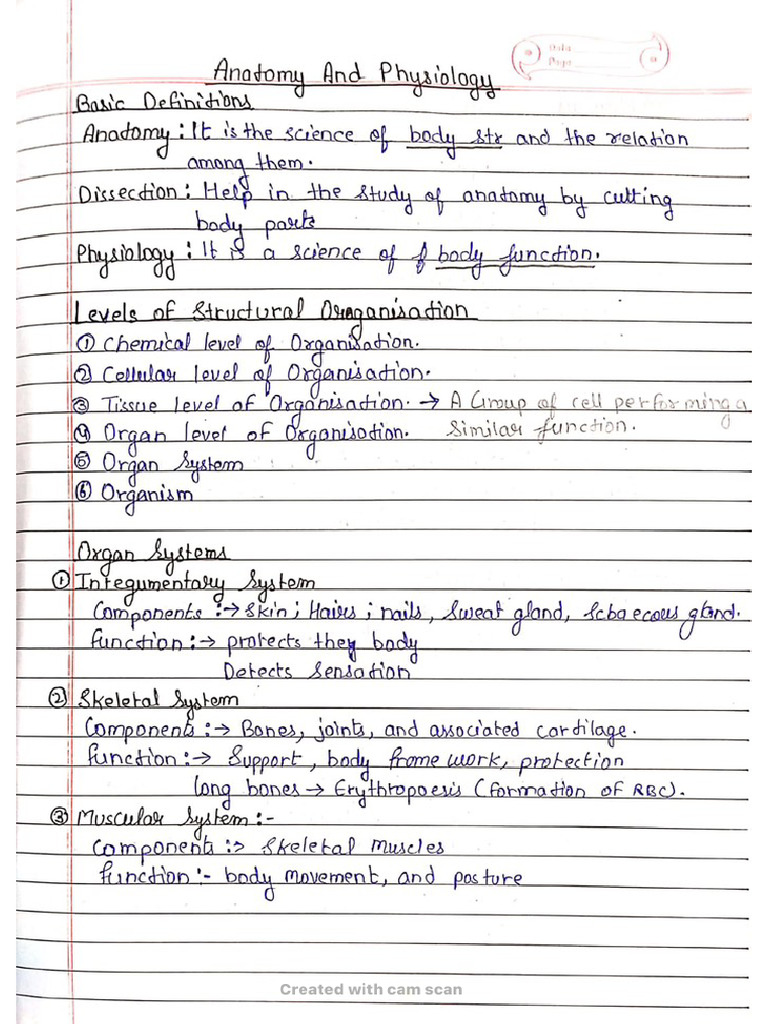 Data
Page
Anatomy And Physiology
Basic Definitions
Anatomy : It is the science of body str and the relation
among them.
Dissection : Help in the study of anatomy by cutting
body parts
Physiology : It is a science of f body function.
Levels of Structural Oreganisation
① Chemical level of Organisation.
② Cellular level of Organisation.
③ Tissue level of Organisation. → A Group of cell performing a
④ Organ level of Organisation. similar function.
⑤ Organ System
⑥ Organism
Organ Systems
① Integumentary System
Components :→ Skin ; Hairs ; nails, Sweat gland, Sebaecous gland.
function :→ protects they body
Detects Sensation
② Skeletal System
Components :→ Bones, joints, and associated cartilage.
function :→ Support, body frame work, protection
long bones → Erythropoesis (formation of RBC).
③ Muscular System :-
Components :→ Skeletal Muscles
function :- body movement, and posture
Created with cam scan